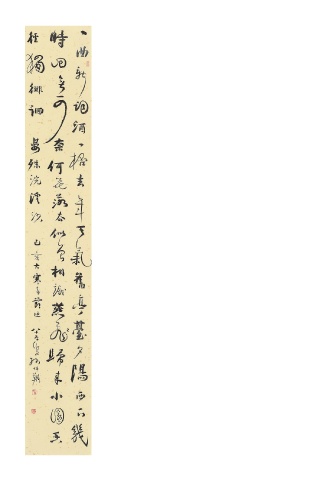 一曲新詞酒一杯去年天氣舊亭臺夕陽西下幾
時回無可奈何花落去似曾相識燕飛歸來小園香
徑獨徘徊 晏殊浣溪沙 己亥大寒